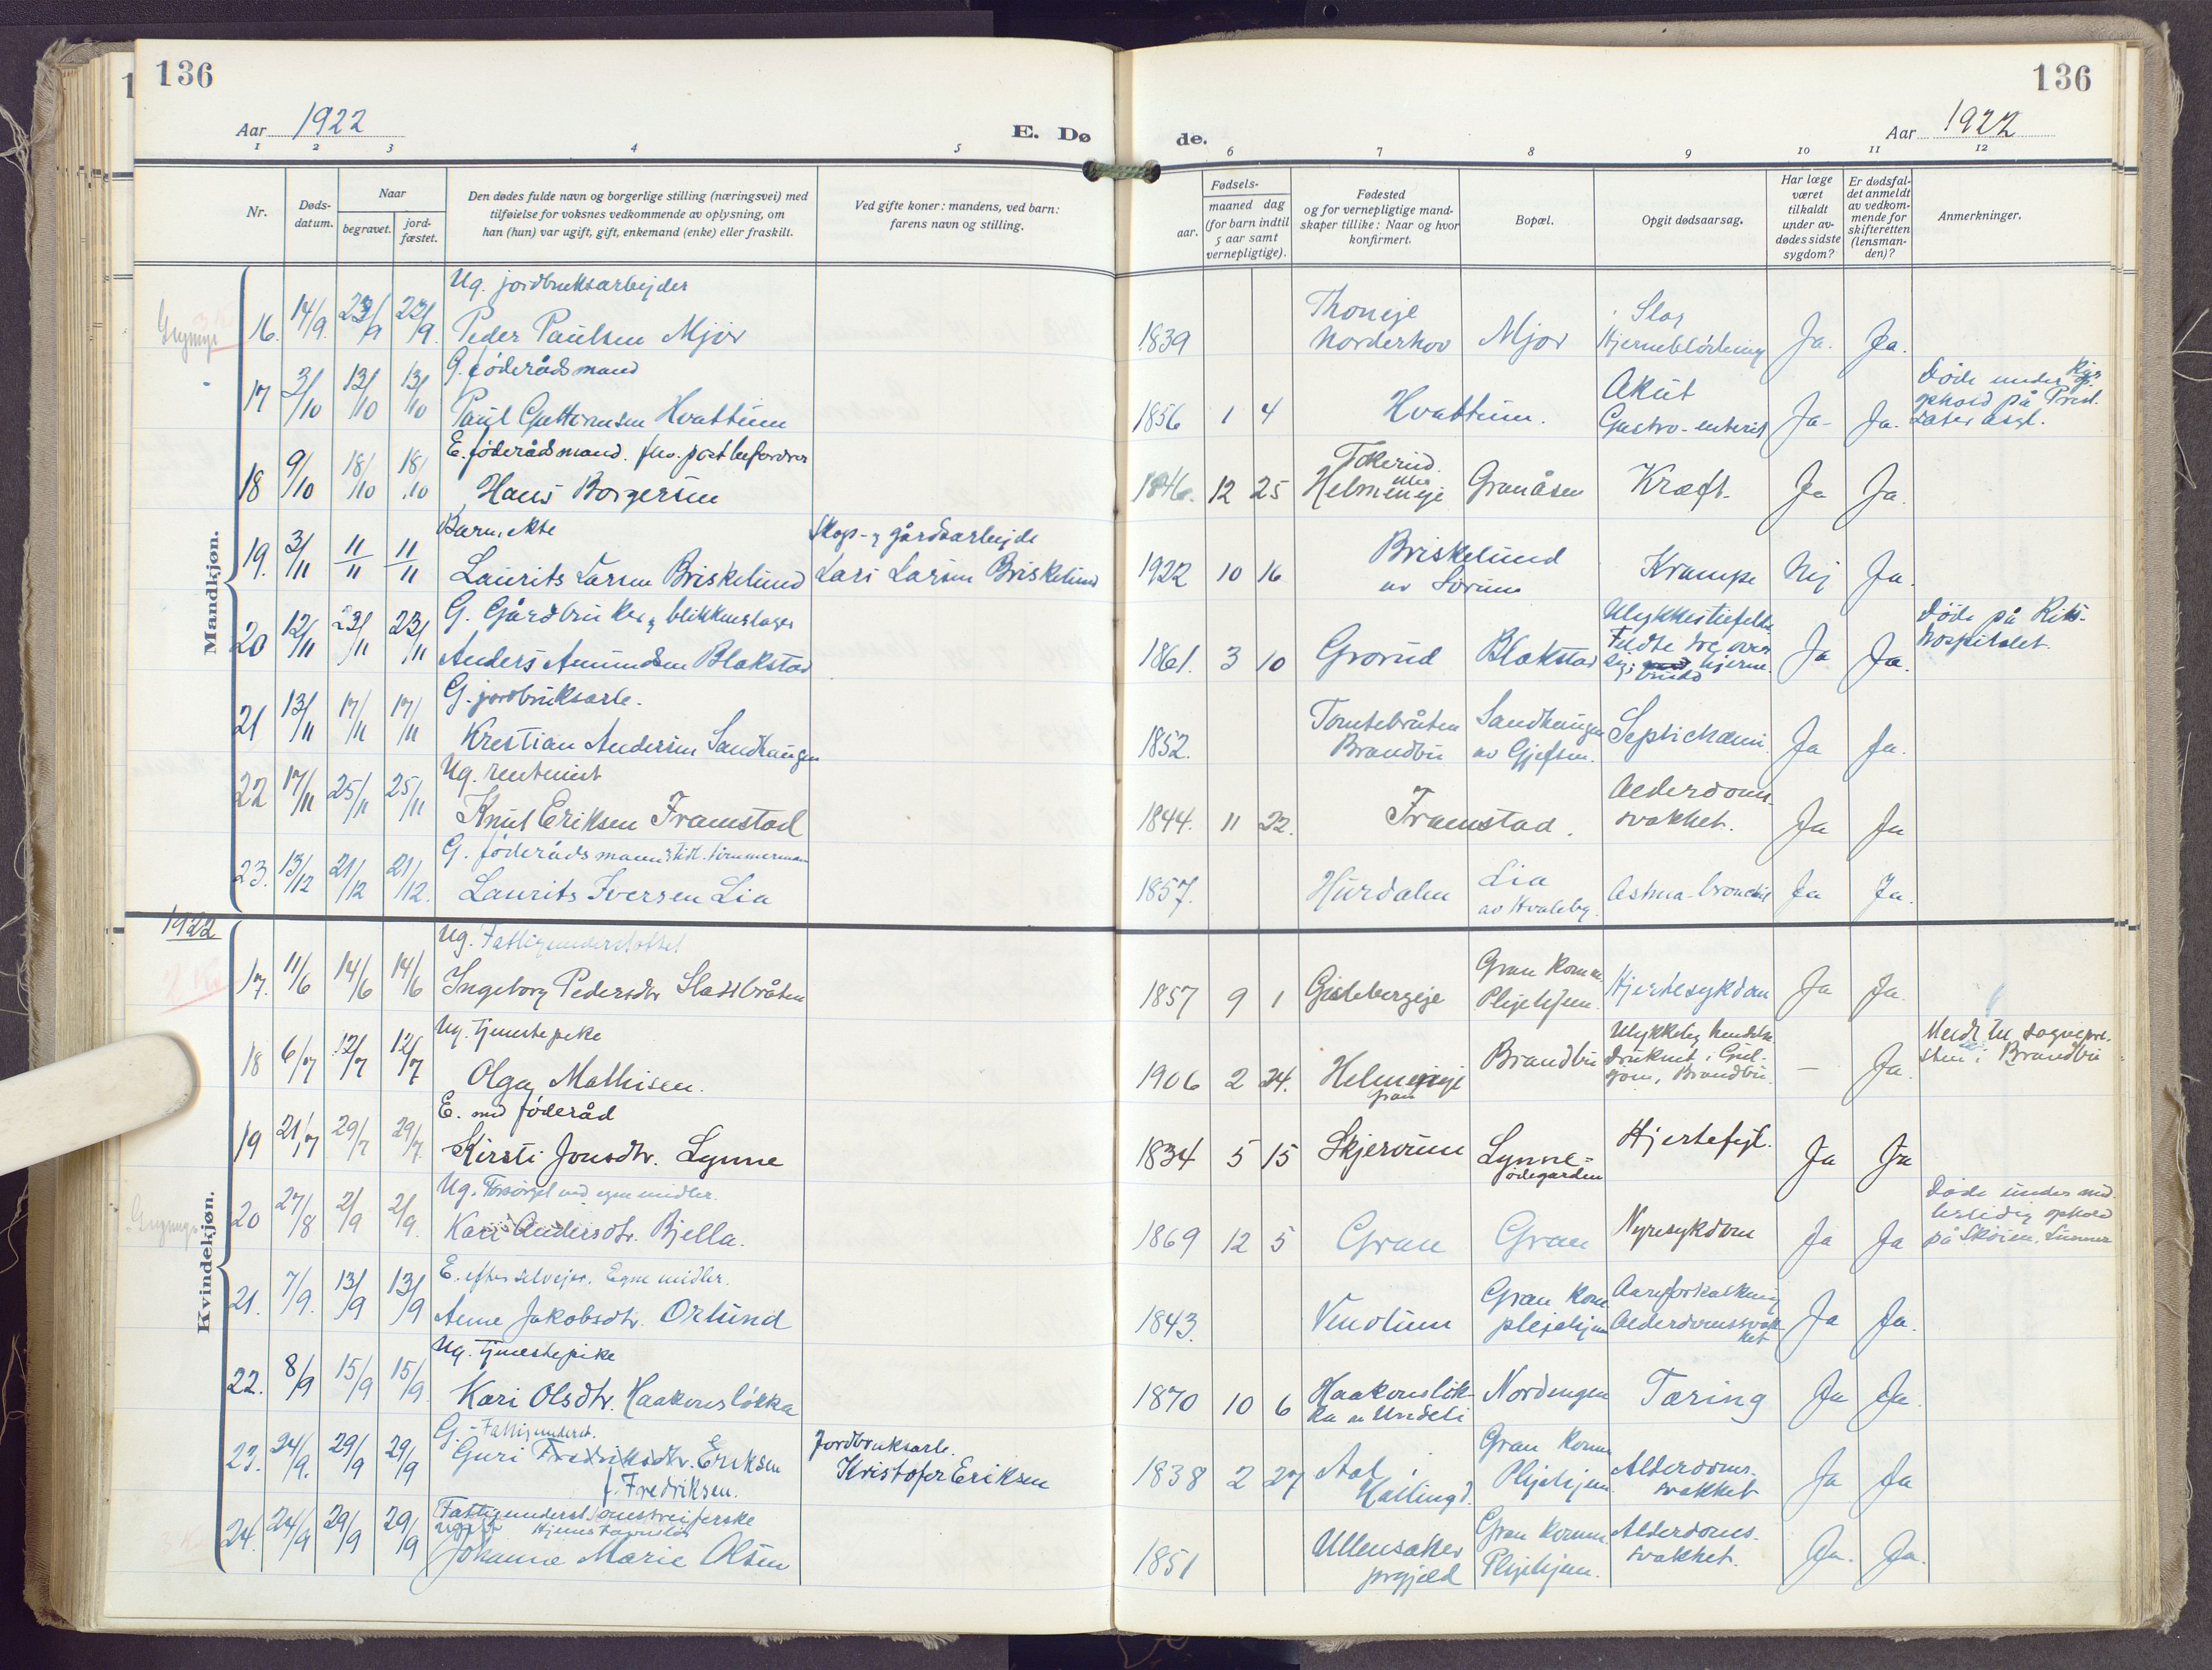 136
136
Aar 1922
E. Dø
de.
Aar 1922
1 2 3 4 5
6 7 8 9 10 11 12
Nr.
Døds-
datum.
Naar
begravet.
jord-
fæstet.
Den dødes fulde navn og borgerlige stilling (næringsvei) med
tilføielse for voksnes vedkommende av oplysning, om
han (hun) var ugift, gift, enkemand (enke) eller fraskilt.
Ved gifte koner: mandens, ved barn:
farens navn og stilling.
Fødsels-
aar.
maaned dag
(for barn indtil
5 aar samt
vernepligtige).
Fødested
og for vernepligtige mand-
skaper tillike: Naar og hvor
konfirmert.
Bopæl.
Opgit dødsaarsag.
Har læge
været
tilkaldt
under av-
dødes sidste
sygdom?
Er dødsfal-
det anmeldt
av vedkom-
mende for
skifteretten
(lensman-
den)?
Anmerkninger.
Mandkjøn.
Ug. jordbruksarbejder
16. 14/9. 23/9 22/9. Peder Paulsen Mjor
1839 Thoneje Norderhov Mjor Slag Hjerneblødning Ja. Ja.
G. føderådsmand
17 3/10 13/10 13/10 Paul Guttormsen Hvattum
1856 1 4 Hvattum. Akut Gastro-enterit Ja- Ja. Døde under
ophold på
E. føderådsmand. fhv. postbefordrer
18 9/10 18/10 18/10 Hans Borgersen
1846. 12 25 Helmeneje Granåsen Kræft. Ja Ja.
Barn, ekte
Skogs- og gårdsarbejde
19. 3/11 11/11 11/11 Laurits Larsen Briskelund Lars Larsen Briskelund
1922 10 16 Briskelund av Sørum Krampe Nej Ja.
G. Gårdbruker og blikkenslager
20 12/11 23/11 23/11 Anders Amundsen Blakstad
1861. 3 10 Grorud Blakstad Ulykkestilfelle. Ja Ja. Døde på Riks-
hospitalet.
G. jordbruksarb.
21 13/11 17/11 17/11 Kristian Andersen Sandhaugen
1852. Tomtebråten Brandbu Sandhaugen av Gjefsen. Septichæmi. Ja Ja.
Ug. rentenist
22 17/11 25/11 25/11 Knut Eriksen Framstad
1844. 11 22. Framstad. Alderdoms-
svakhet. Ja Ja
G. føderådsmann tidl. tømmermann
23. 13/12 21/12 21/12. Laurits Iversen Lia
1857. Hurdalen Lia av Hvaleby. Astma-bronchit Ja Ja.
1922
Kvindekjøn.
Ug. Fattigunderstøttet
17. 11/6 14/6 14/6 Ingeborg Pedersdtr Sladsbråten
1857 9 1 Gislebergeje Gran Komm. Plejehjem. Hjertesykdom Ja Ja.
Ug. tjenestepike
18 6/7 12/7 12/7 Olga Mathisen.
1906 2 24. Helmeneje gran Brandbu Ulykkelig hendelse
druknet i
sjøen, Brandbu. — Ja. Meldt til sogneprę-
sten i Brandbu
E. med føderåd
19 21/7 29/7 29/7. Kirsti Jonsdtr. Lynne
1834 5 15 Skjervum Lynne=
ødegarden Hjertefejl. Ja Ja
Ug. Forsørget ved egne midler.
20 27/8 2/9 2/9. Kari Andersdtr. Bjella.
1869 12 5 Gran Gran Nyresykdom Ja Ja Døde under mid-
lertidig ophold
på Skøien, Lunner
E. efter selvejer. Egne midler.
21. 7/9. 13/9 13/9 Anne Jakobsdtr. Orlund
1843. Vinolum Gran Kom. plejehjem Aareforkalkning
Alderdomssvak-
het Ja Ja.
Ug. tjenestepike
22. 8/9 15/9 15/9. Kari Olsdtr. Haakensløkka
1870 10 6 Haakensløk-
ka av Undeli Nordengen Tæring Ja Ja.
G. - Fattigunderst.
Jordbruksarb.
23. 24/9. 29/9 29/9 Guri Fredriksdtr. Eriksen Kristofer Eriksen
f. Fredriksen.
1838 2 27 Aal i
Hallingd. Gran Komm Plejehjem Alderdoms-
svakhet Ja Ja
Fattigunderst. omstreiferske
24. 24/9 29/9 29/9 Johanne Marie Olsen
1851 Ullensaker
prgjæld Gran Komm. Plejehjem. Alderdoms-
svakhet. Ja. Ja.